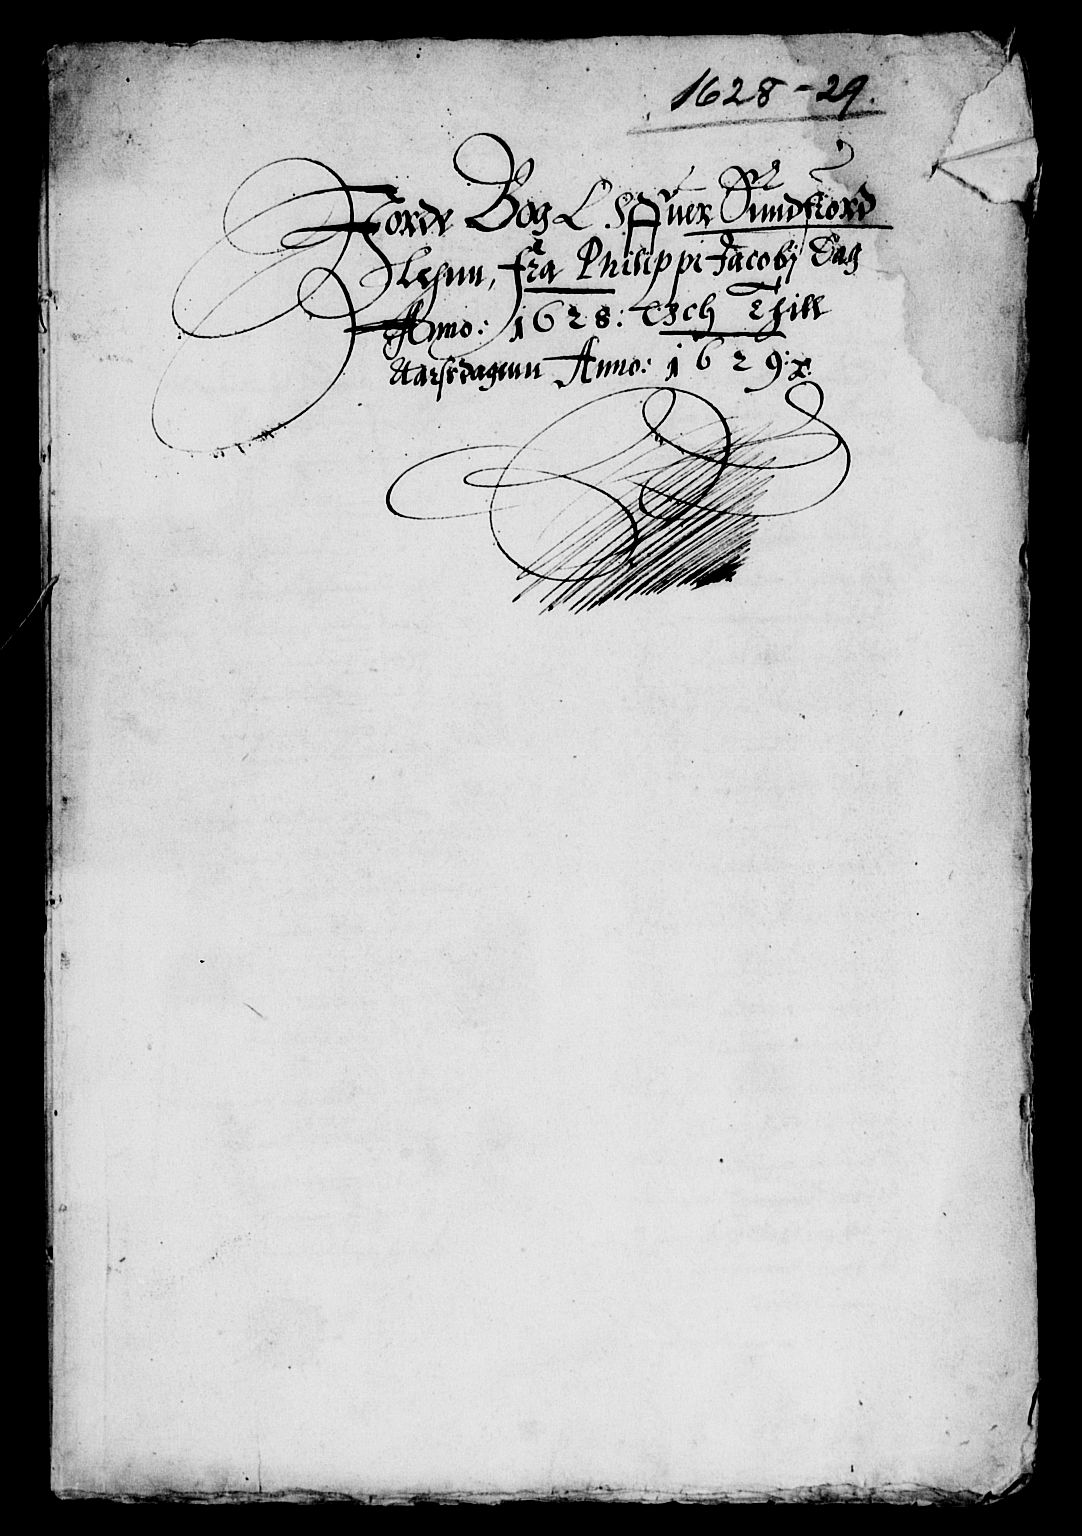 1628-29.
Jorde Bog Offuer Sundfiord
Lehnn, fra Philippi Jacobj Dag
Anno: 1628: Och Thill
Aarsdagenn Anno: 1629: